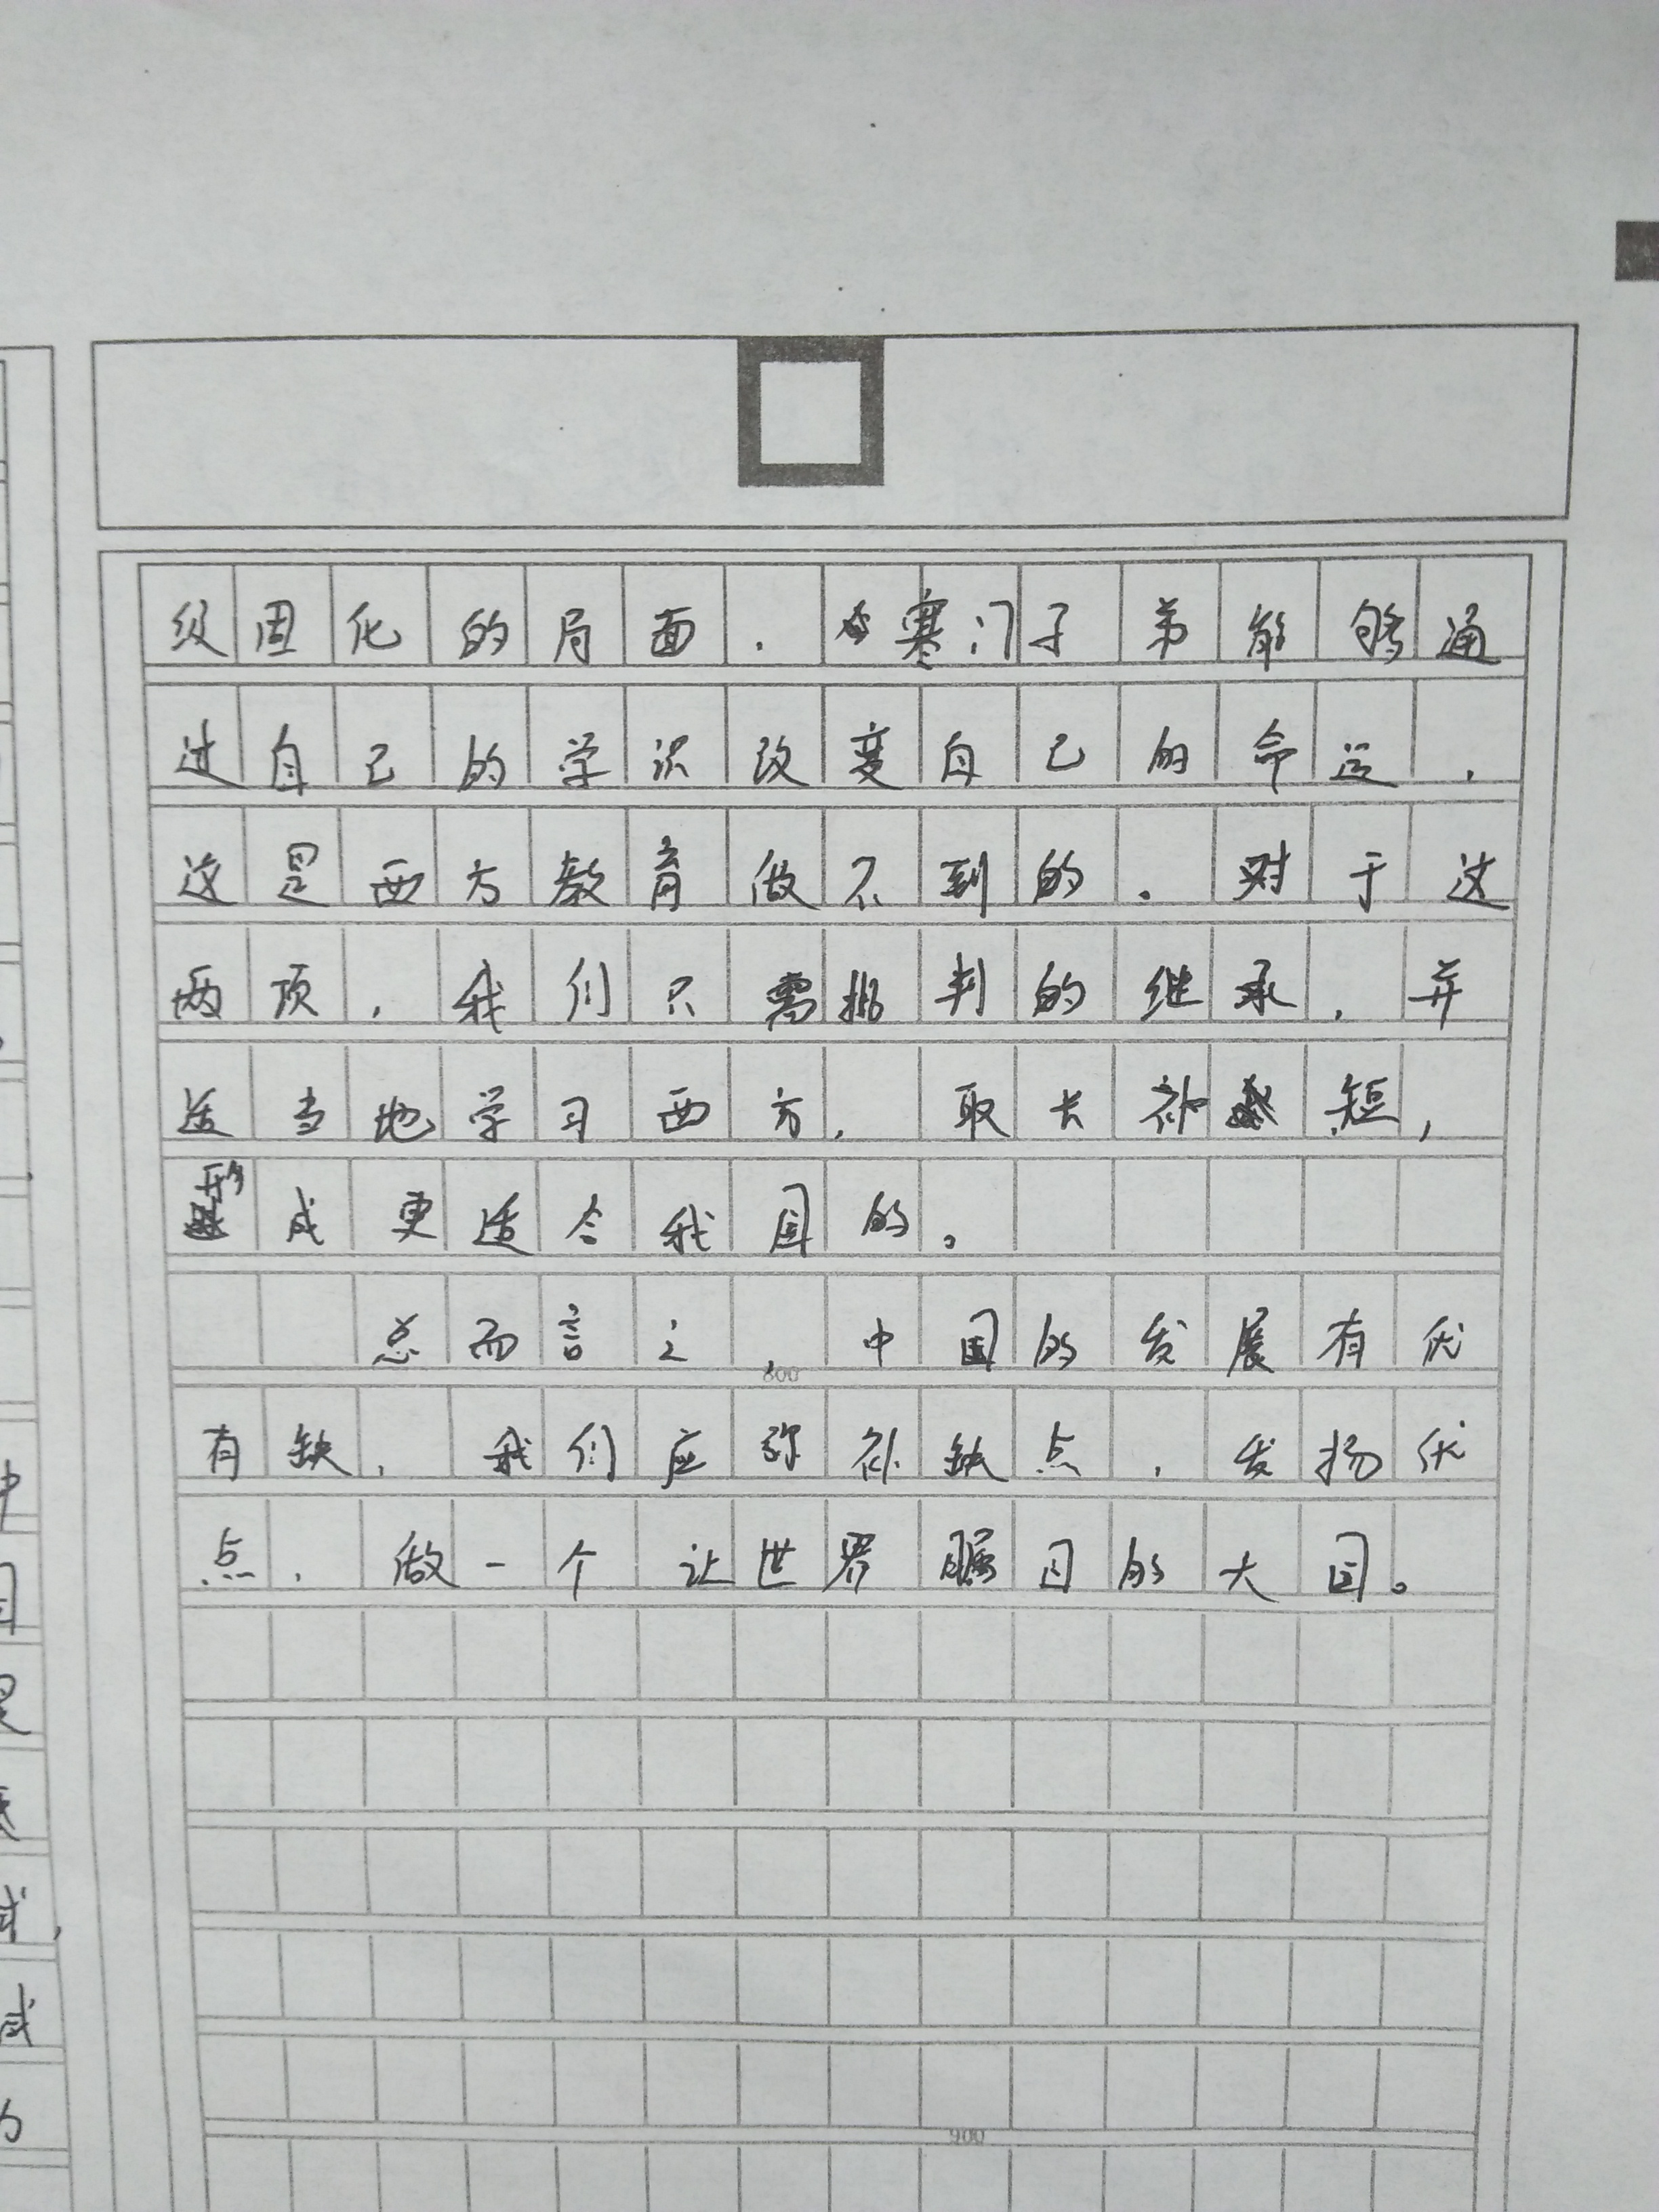 级固化的局面，令寒门子弟能够通
过自己的学识改变自己的命运，
这是西方教育做不到的。对于这
两项，我们只需批判的继承，并
适当地学习西方，取长补短，
形成更适合我国的。
总而言之，中国的发展有优
800
有缺，我们应弥补缺点，发扬优
点，做一个让世界瞩目的大国。
900